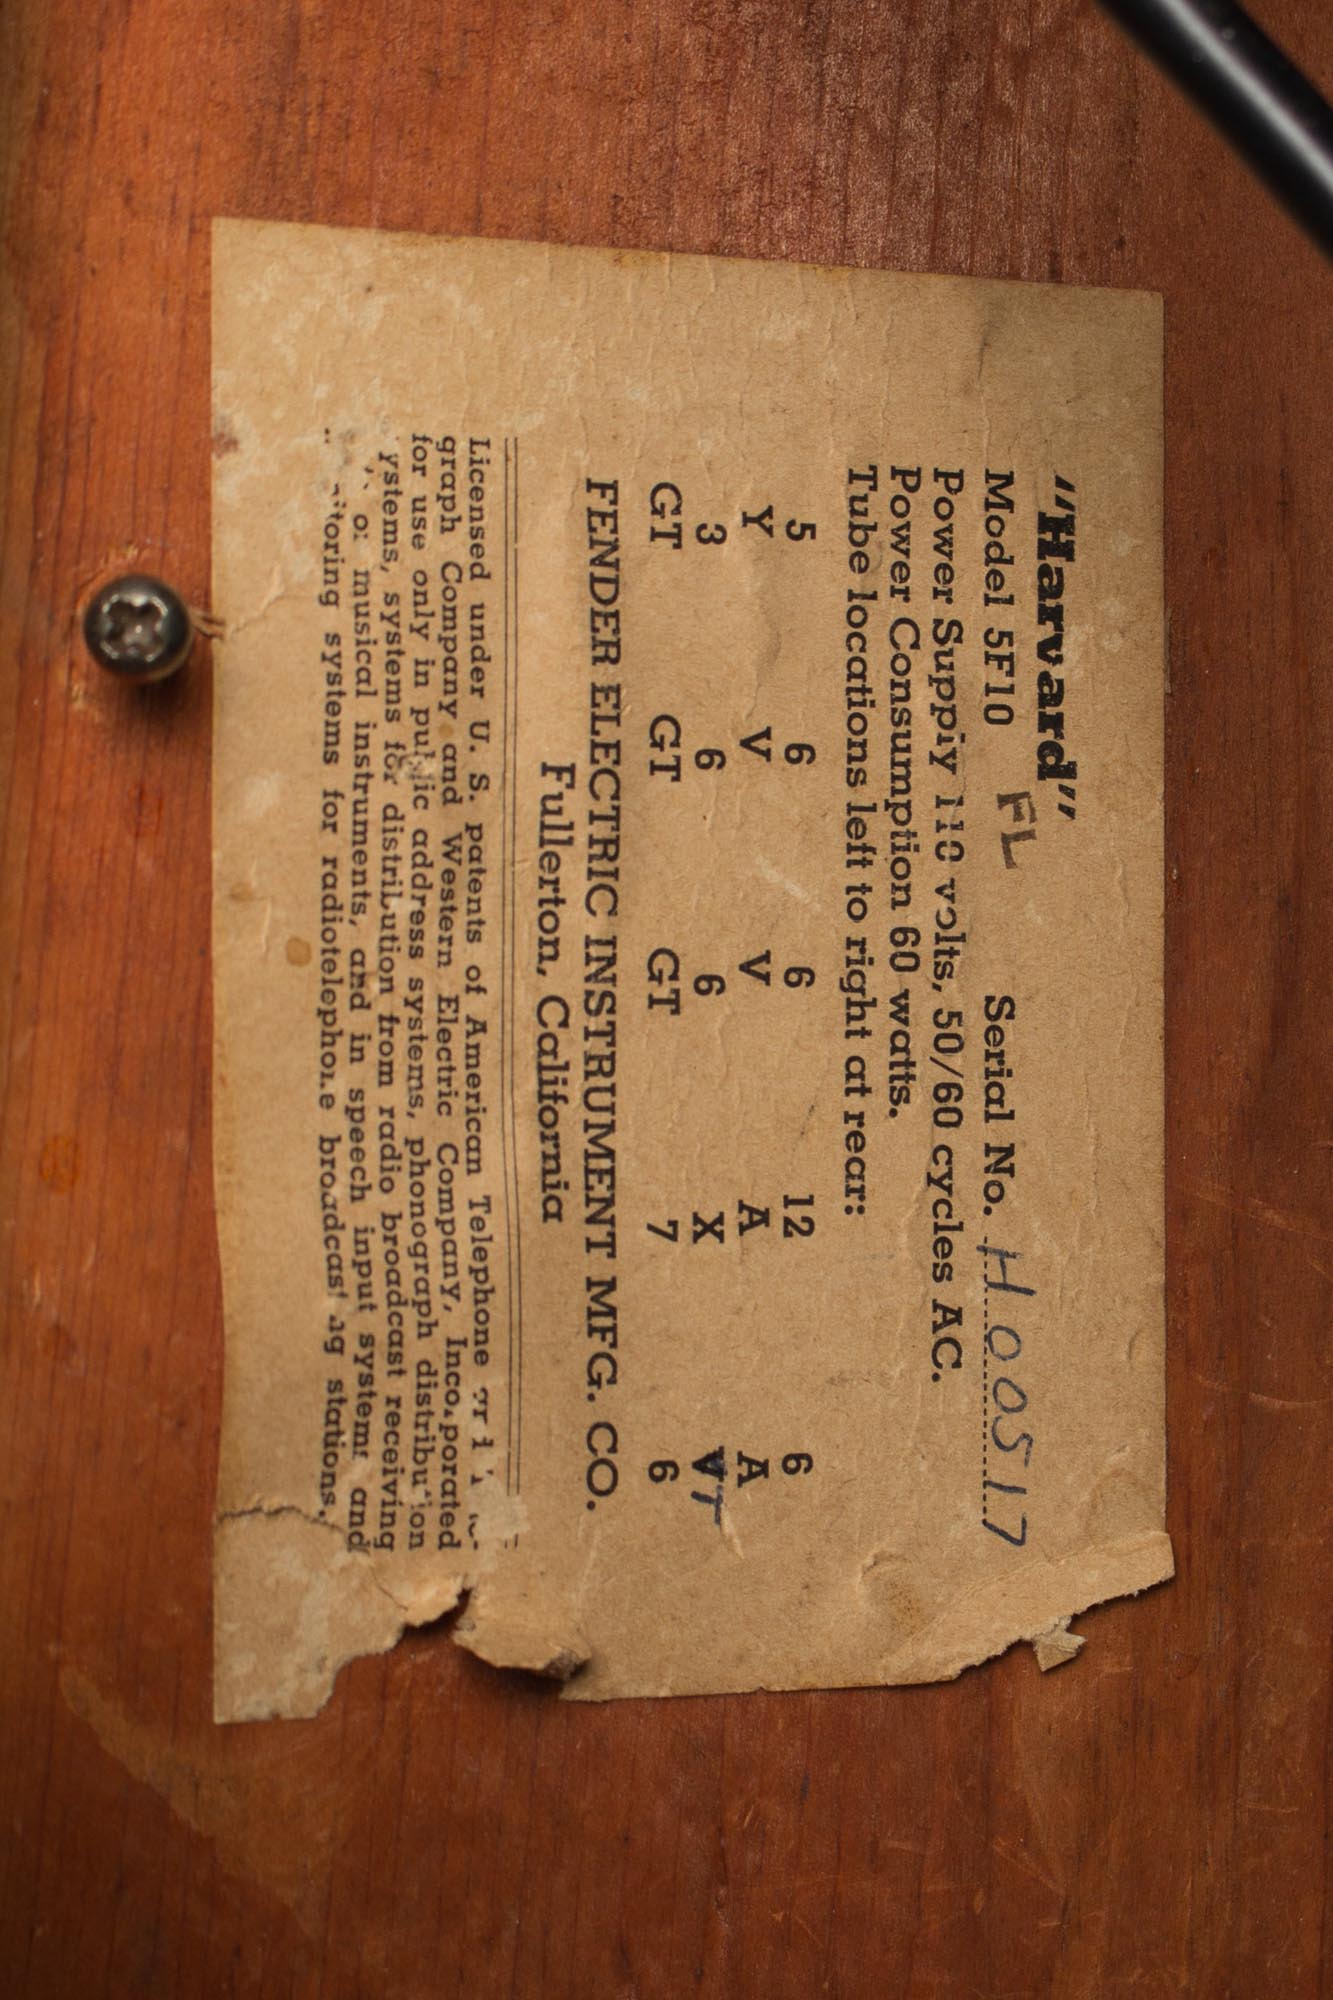 "Harvard"
Model 5F10 FL Serial No. H00517
Power Supply 110 volts, 50/60 cycles AC.
Power Consumption 60 watts.
Tube locations left to right at rear:
5 6 6 12 6
Y V V A A
3 6 6 X VT
GT GT GT 7 6
FENDER ELECTRIC INSTRUMENT MFG. CO.
Fullerton, California
Licensed under U. S. patents of American Telephone
graph Company and Western Electric Company, Incorporated
for use only in public address systems, phonograph distribution
systems, systems for distribution from radio broadcast receiving
musical instruments, and in speech input systems and
systems for radiotelephone broadcasting stations.